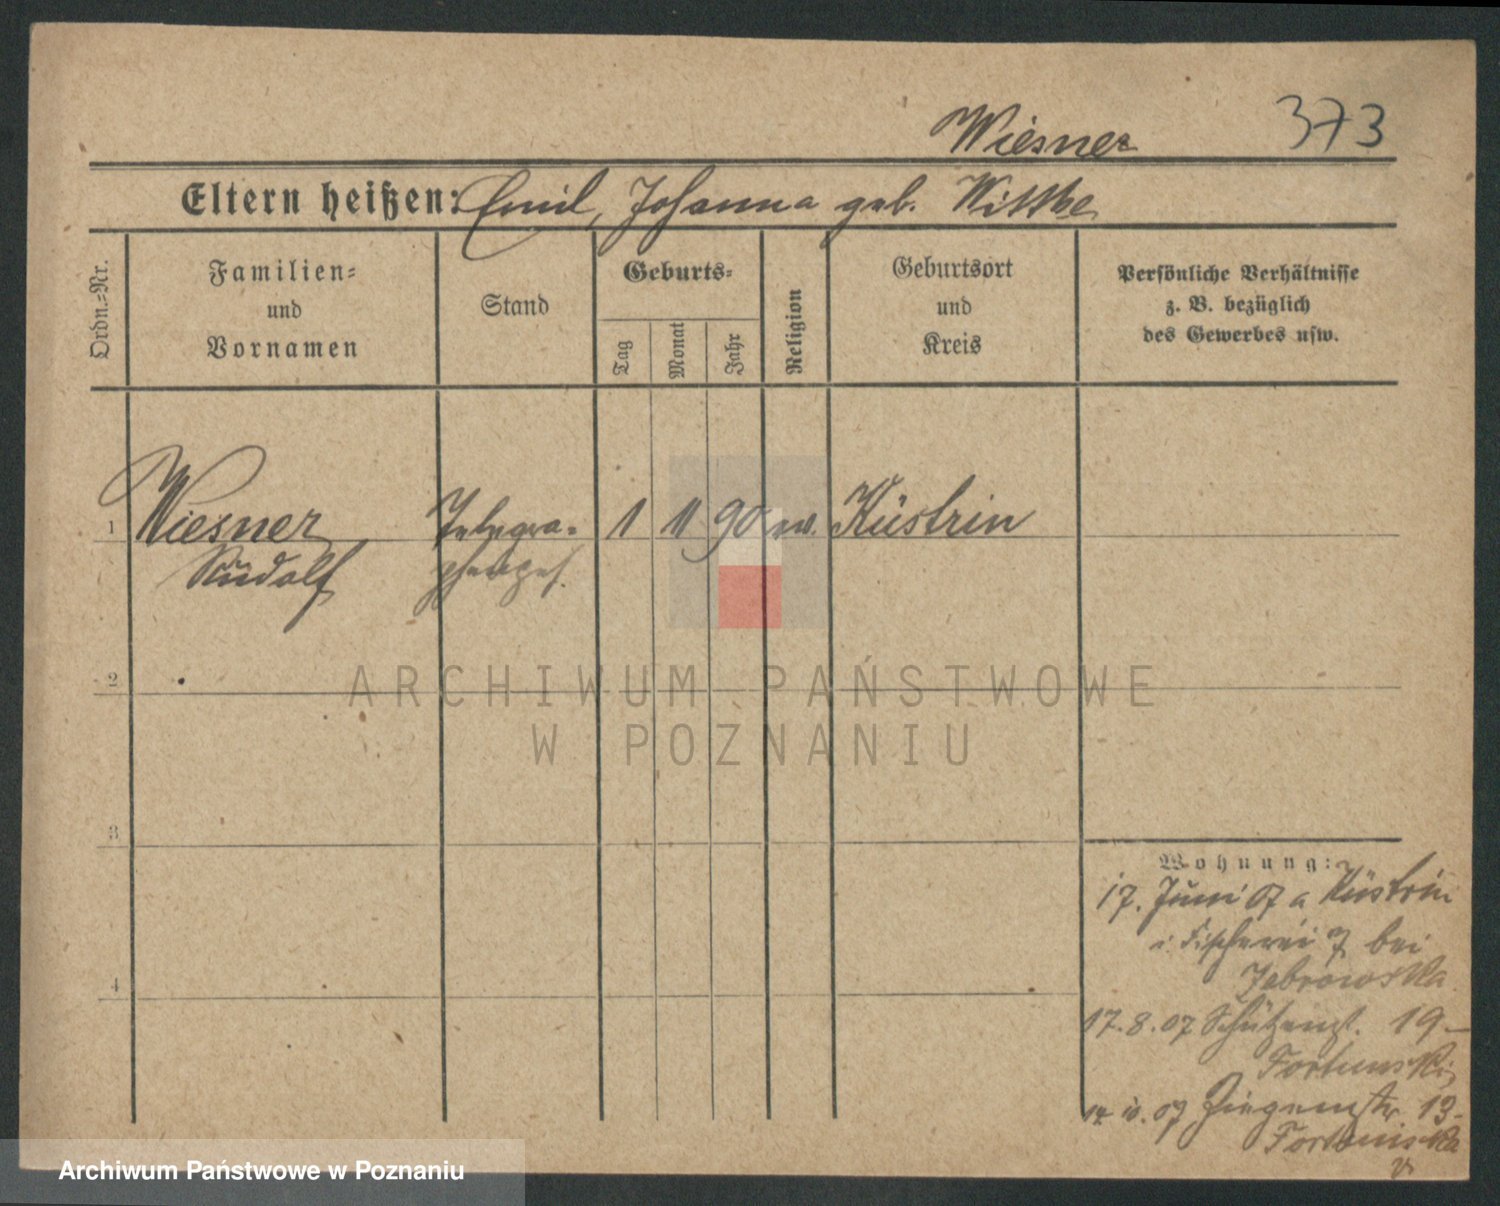 Wiesner 373
Eltern heißen: Emil, Johanna geb. Wittke
Ordn.=Nr.
Familien=
und
Vornamen
Stand
Geburts=
Tag
Monat
Jahr
Religion
Geburtsort
und
Kreis
Persönliche Verhältnisse
z. B. bezüglich
des Gewerbes usw.
1 Wiesner Telegra- 1 11 90 ev. Küstrin
Rudolf
2
3
4
Wohnung:
17. Juni 07 a Küstrin
Fischerei 7 bei
Zabrowska
17.8.07 Schützenst. 19
Fortunski
07 13
ARCHIWUM PAŃSTWOWE
W POZNANIU
Archiwum Państwowe w Poznaniu